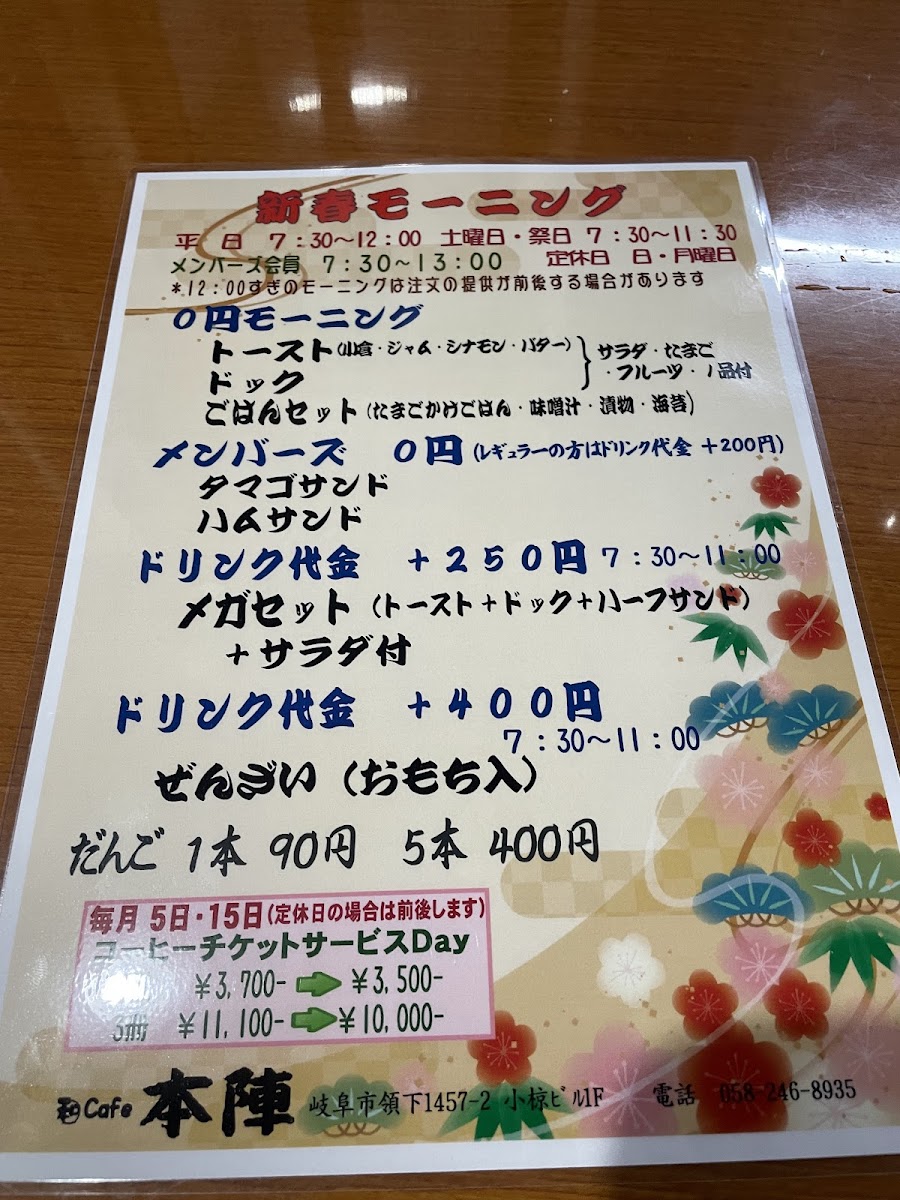 新春モーニング
平 日 7:30～12:00 土曜日・祭日 7:30～11:30
メンバーズ会員 7:30～13:00 定休日 日・月曜日
*12:00すぎのモーニングは注文の提供が前後する場合があります
0円モーニング
トースト(小倉・ジャム・シナモン・バター)
ドック
サラダ・たまご
・フルーツ・1品付
ごはんセット(たまごかけごはん・味噌汁・漬物・海苔)
メンバーズ 0円(レギュラーの方はドリンク代金 +200円)
タマゴサンド
ハムサンド
ドリンク代金 +250円 7:30～11:00
メガセット(トースト+ドック+ハーフサンド)
+サラダ付
ドリンク代金 +400円
7:30～11:00
ぜんざい(おもち入)
だんご 1本 90円 5本 400円
毎月 5日・15日(定休日の場合は前後します)
コーヒーチケットサービスDay
¥3,700- ¥3,500-
3冊 ¥11,100- ¥10,000-
和Cafe 本陣 岐阜市領下1457-2 小椋ビル1F 電話 058-246-8935